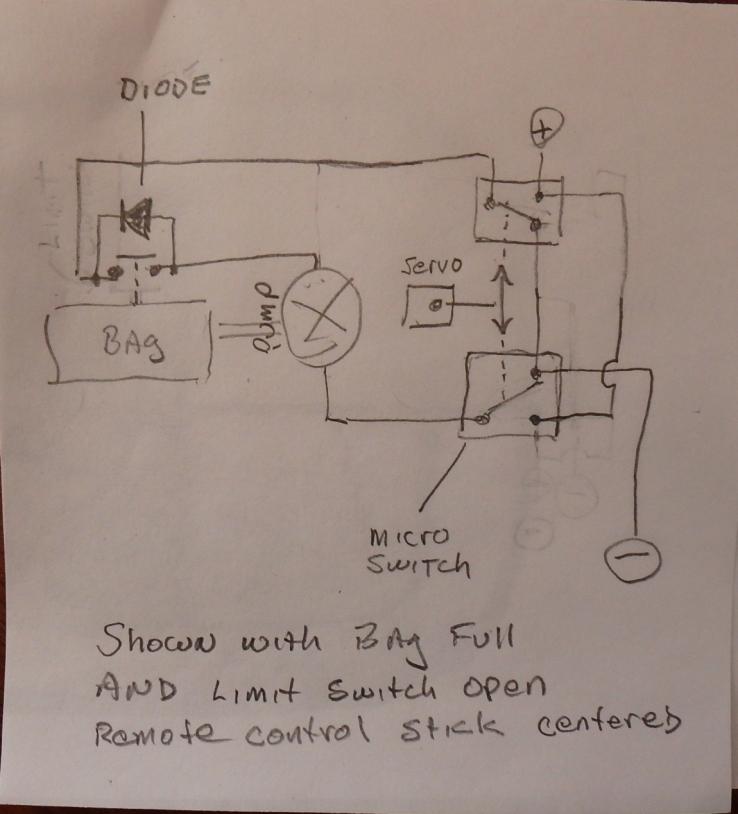 DIODE
+
Servo
PUMP
BAg
MICRO
SWITCH
−
Shown with BAg Full
AND Limit Switch open
Remote control stick centered